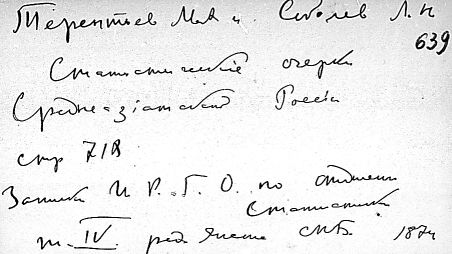 Терентьев М.А и. Соболев Л. Н
639
Статистические очерки
Средне-азиатской России
стр 718
Записки И. Р. Г. О. по отделению
Статистики
т. IV. ред. СПБ. 1874